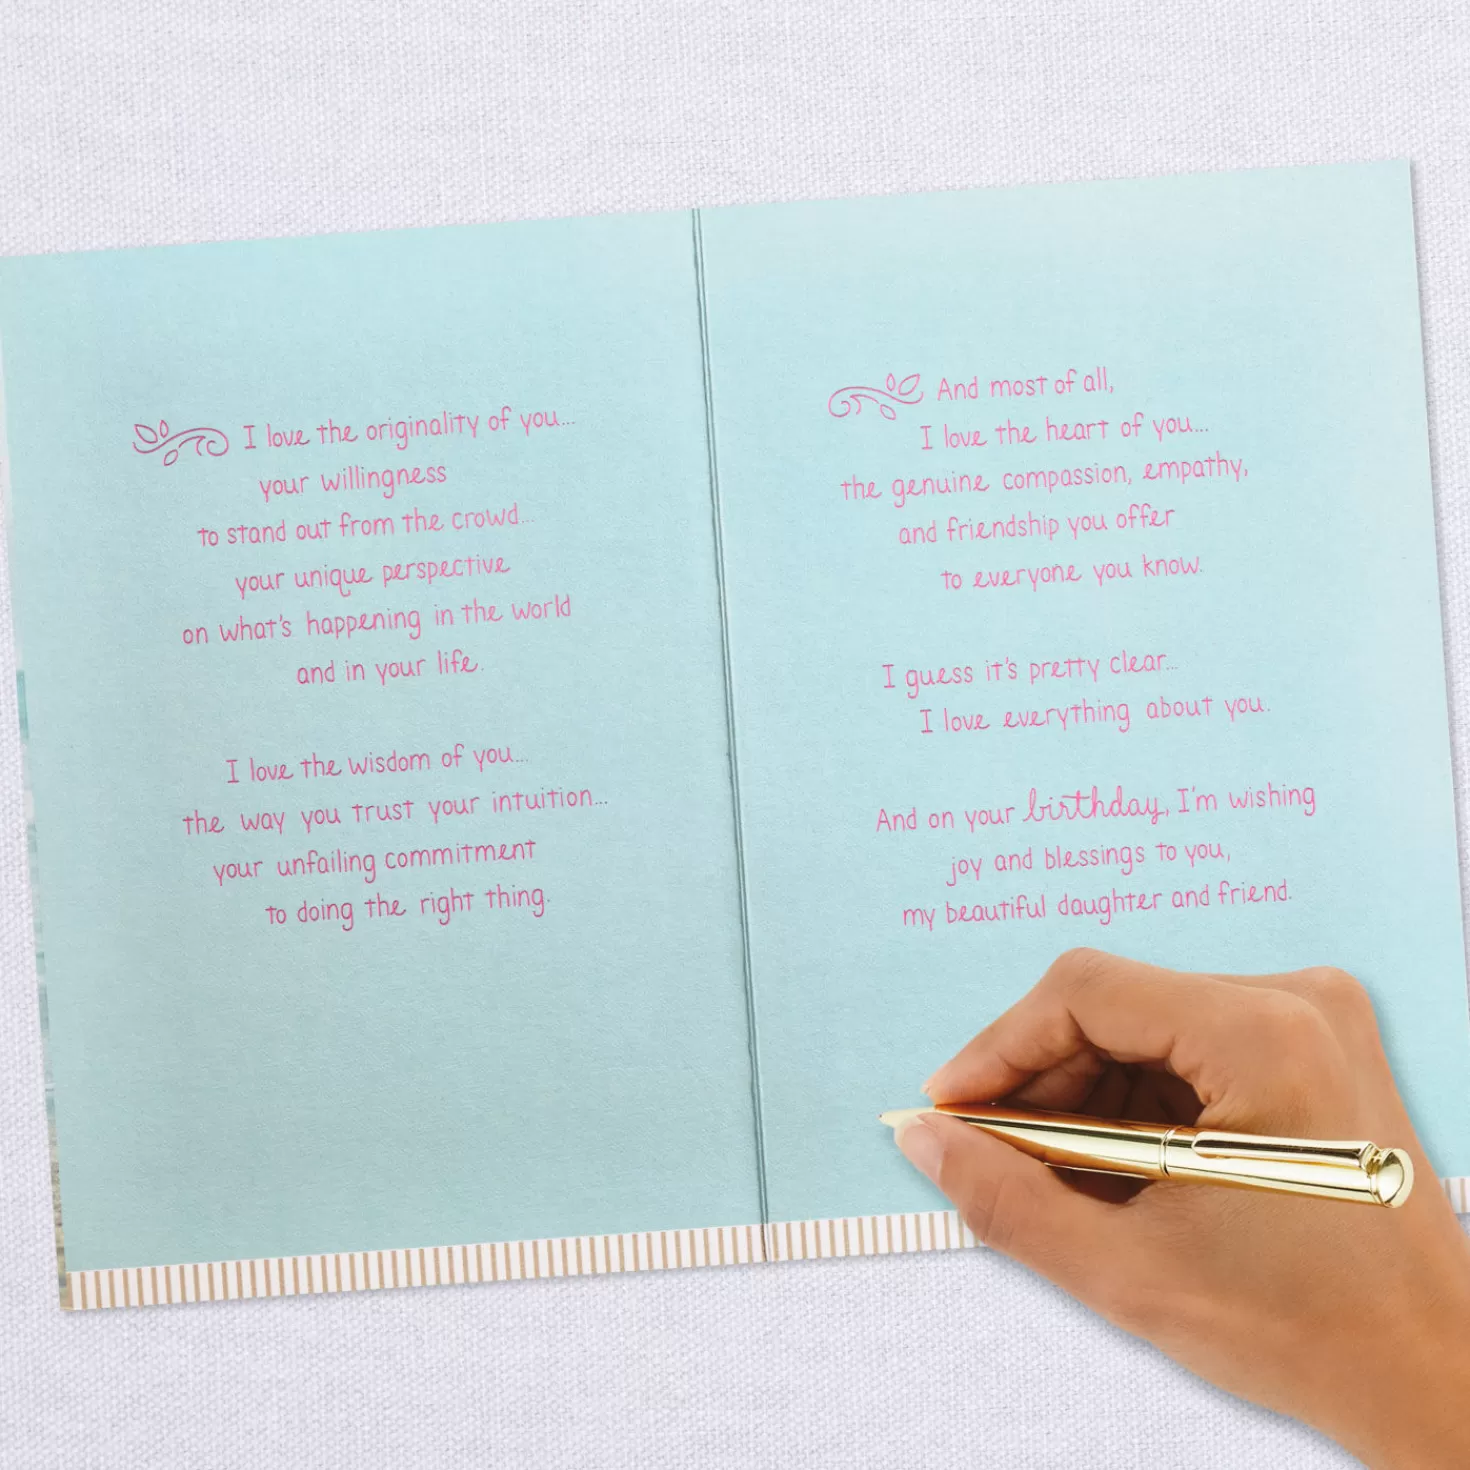 I love the originality of you...
your willingness
to stand out from the crowd...
your unique perspective
on what's happening in the world
and in your life.
I love the wisdom of you...
the way you trust your intuition...
your unfailing commitment
to doing the right thing.
And most of all,
I love the heart of you...
the genuine compassion, empathy,
and friendship you offer
to everyone you know.
I guess it's pretty clear...
I love everything about you.
And on your birthday, I'm wishing
joy and blessings to you,
my beautiful daughter and friend.